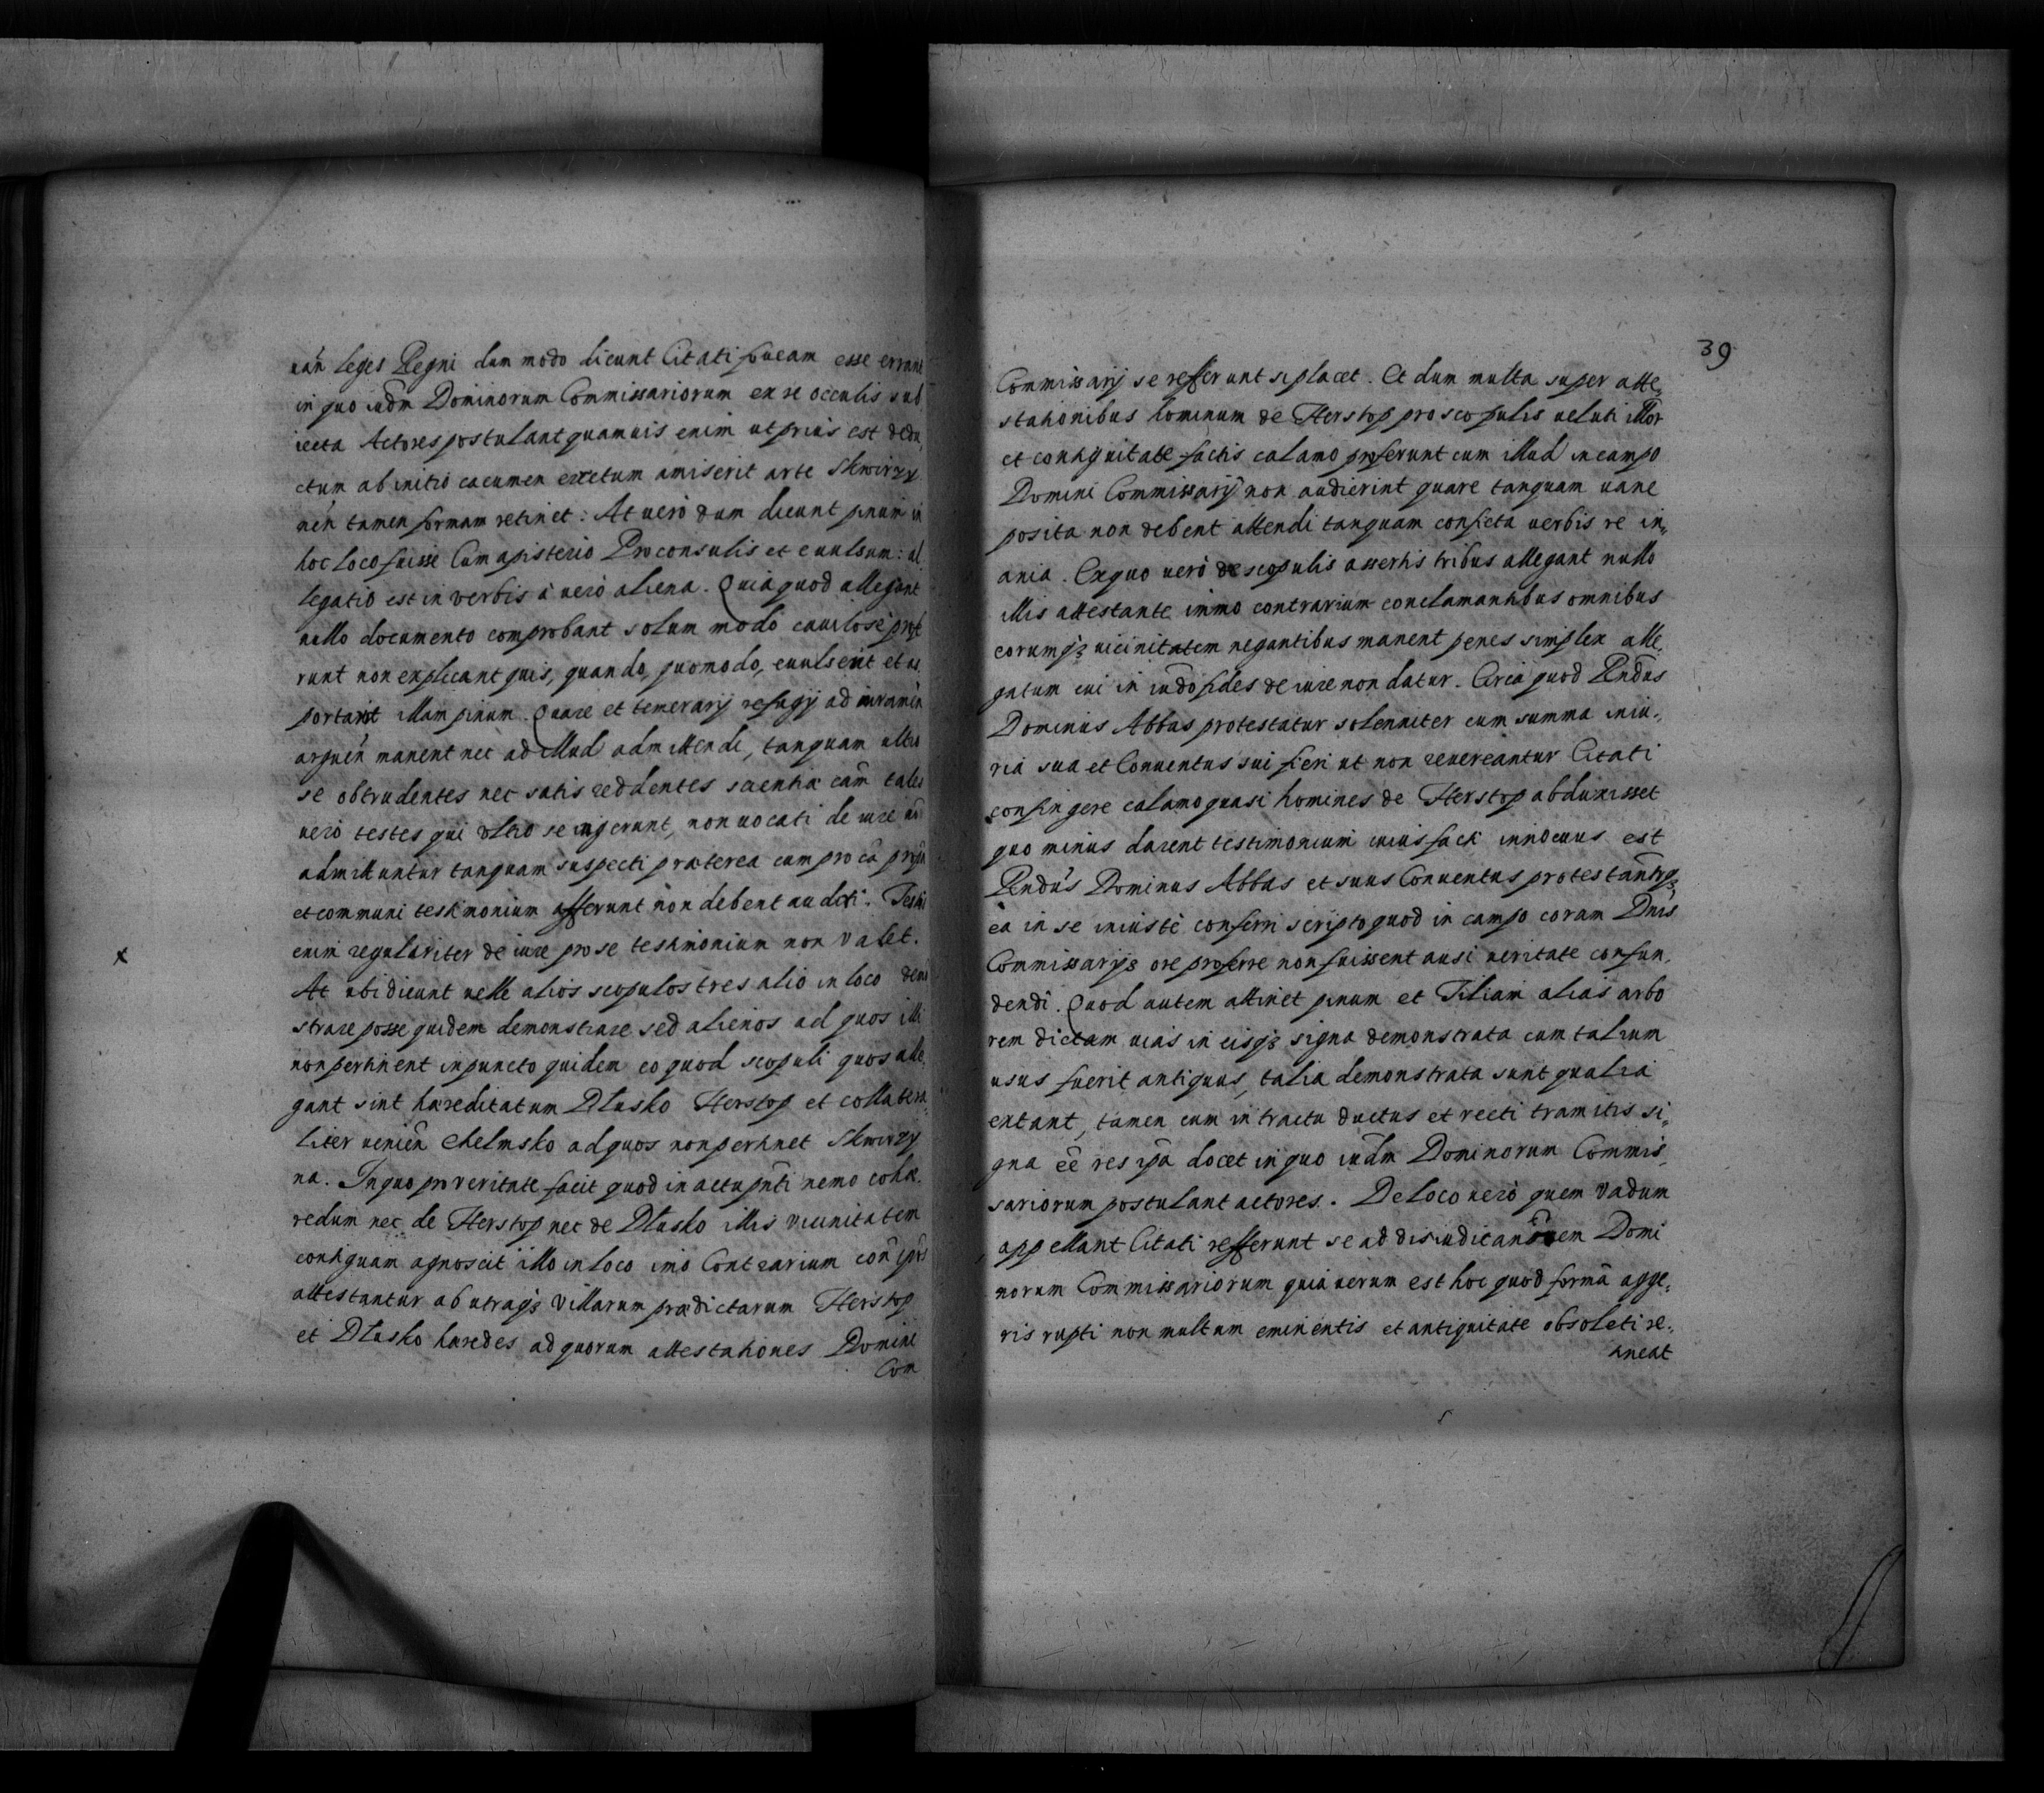 uan̄ leges Regni dum modo dicunt Citati foueam esse erran
in quo iud̄m Dominorum Commissariorum ex re occulis sub
iecta Actores postulant quamuis enim ut prius est dedu
ctum ab initio cacumen erectum amiserit arte Skwirzy
nen̄ tamen formam retinet: At uerò dum dicunt pinum in
hoc loco fuisse Cum apisterio Proconsulis et euulsum: al
legatio est in verbis à uerò aliena. Quia quod allegant
nullo documento comprobant solum modo cauilosè profe
runt non explicant quis, quando, quomodo, euulserit et as
portarit illam pinum. Quare et temerarij refugij ad iuramen̄
arguen̄ manent nec ad illud admittendi, tanquam ultro
se obtrudentes nec satis reddentes scientiæ cam̄ tales
uerò testes qui ultro se ingerunt, non uocati de iure nō
admittuntur tanquam suspecti præterea cum pro cā propria
et communi testimonium afferunt non debent audiri. Testis
enim regulariter de iure pro se testimonium non valet.
x
At ubi dicunt uelle alios scopulos tres alio in loco demō
strare posse quidem demonstrare sed alienos ad quos illi
non pertinent in puncto quidem eo quod scopuli quos alle
gant sint hæreditatum Dlusko Herstop et collatera
liter uenien̄ Chelmsko ad quos non pertinet Skwirzy
na. In quo pro veritate facit quod in actu pn̄ti nemo cohæ
redum nec de Herstop nec de Dlusko illis vicinitatem
contiguam agnoscit illo in loco imò Contrarium con̄
attestantur ab utraq3 Villarum prædictarum Herstop
et Dlusko hæredes ad quorum attestationes Domini
Com
39
Commissarij se refferunt si placet. Et dum multa super atte,
stationibus hominum de Herstop pro scopulis ueluti illor̄
et contiguitate factis calamo proferunt cum illud in campo
Domini Commissarij non audierint quare tanquam uane
posita non debent attendi tanquam conficta uerbis re in,
ania. Ex quo uerò de scopulis assertis tribus allegant nullo
illis attestante immo contrarium conclamantibus omnibus
eorumq3 uicinitatem negantibus manent penes simplex alle,
gatum cui in iud̄o fides de iure non datur. Circa quod Rn̄dus
Dominus Abbas protestatur solenniter cum summa iniu,
ria sua et Conuentus sui fieri ut non reuereantur Citati
confingere calamo quasi homines de Herstop abduxisset
quo minus darent testimonium cuius facti innocuus est
Rn̄dus Dominus Abbas et suus Conuentus protestan̄rq3
ea in se iniustè conferri scripto quod in campo coram Dn̄is
Commissarijs ore proferre non fuissent ausi ueritate confun,
dendi. Quod autem attinet pinum et Tiliam alias arbo
rem dictam uias in eisq3 signa demonstrata cum talium
usus fuerit antiquus, talia demonstrata sunt qualia
extant, tamen cum in tractu ductus et recti tramitis si,
gna eē res ipā docet in quo iud̄m Dominorum Commis,
sariorum postulant actores. De loco uerò quem Vadum
appellant Citati refferunt se ad disiudican̄onem Domi
norum Commissariorum quia uerum est hoc quod formā agge,
ris rupti non multum eminentis et antiquitate obsoleti re,
tineat